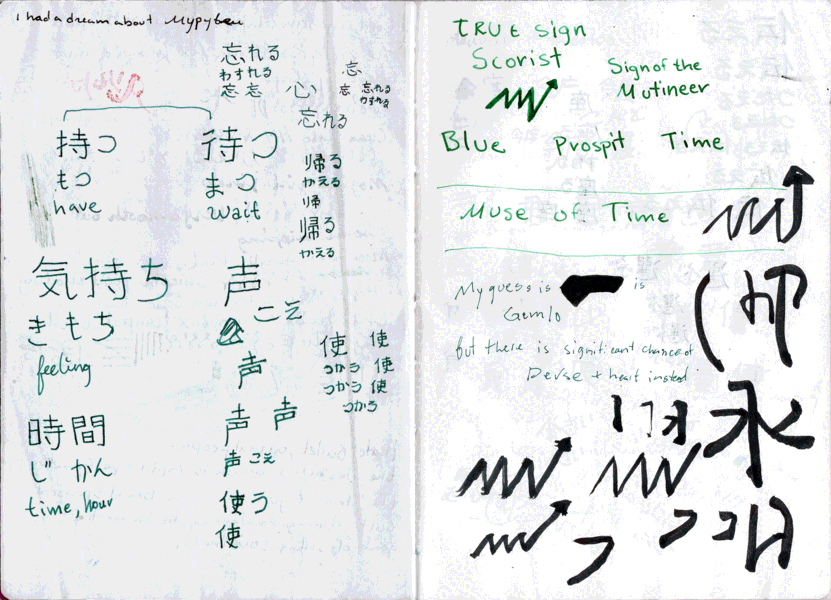 I had a dream about
忘れる
わすれる
忘 忘
心
忘れる
忘
忘 忘れる
わすれる
持つ
もつ
have
待つ
まつ
wait
帰る
かえる
帰
帰る
かえる
気持ち
きもち
feeling
声
こえ
声
声 声
声 こえ
使う
使
時間
じかん
time, hour
使 使
つかう 使
つかう 使
つかう
TRUE sign
Scorist
Sign of the
Mutineer
Blue Prospit Time
Muse of Time
My guess is is
Gemlo
But there is significant chance of
Derse + heart instead
永